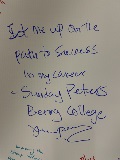 me up on the
Path to Success
in my career
- Sunday Peters
Berry College